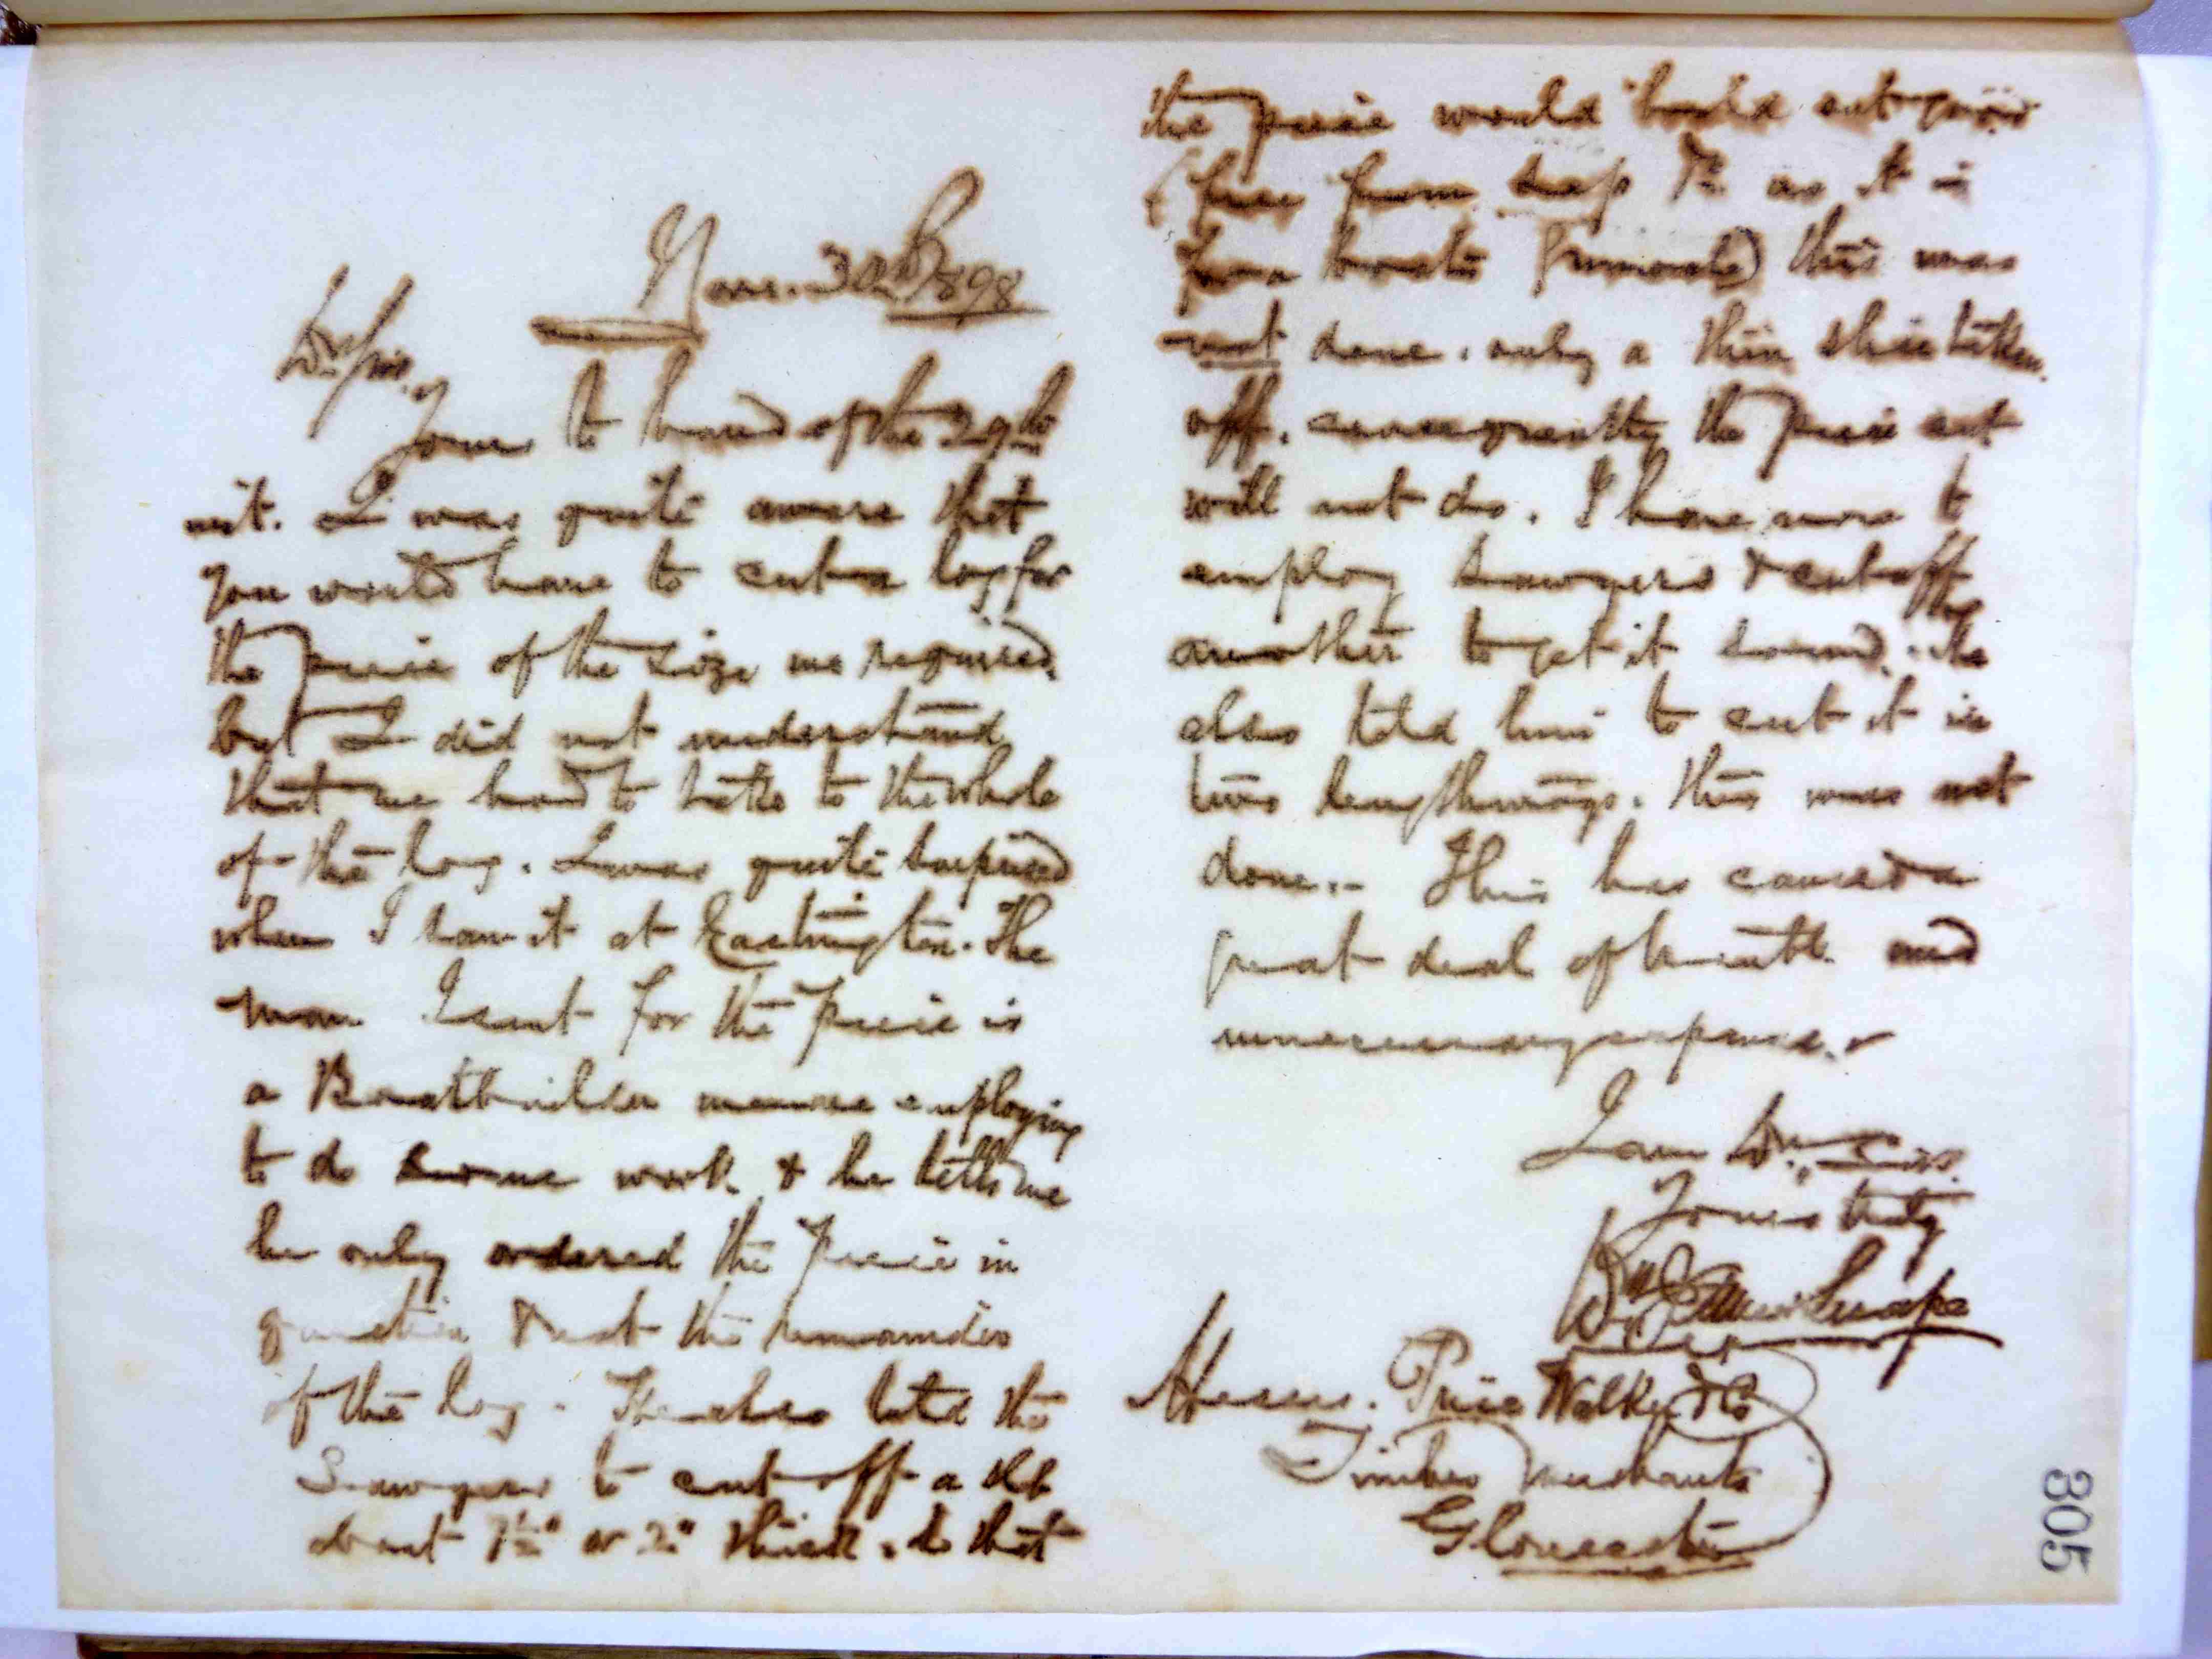 Novr. 30th 1898
Dr Sir,
Yours to hand of the 29th
inst. I was quite aware that
you would have to cut a log for
the piece of the size we required
but I did not understand
that we had to take to the whole
of the log. I was quite surprised
when I saw it at Eastington. The
man I sent for the piece is
a Boatbuilder we are employing
to do some work & he tells me
he only ordered the piece in
question & not the remainder
of the log. He also told the
Sawyers to cut off a slab
about 1½" or 2" thick, so that
the piece would hold out
(free from sap &c as it is
removed) this was
not done, only a thin slice taken
off, consequently the piece cut
will not do. I have now to
employ Sawyers & cut off
another to get it sound. He
also told him to cut it in
two lengthways. this was not
done. This has caused a
great deal of trouble and
unnecessary expense.
I am Dr Sir,
Yours truly
Messrs. Price Walker & Co
Timber Merchants
Gloucester
305